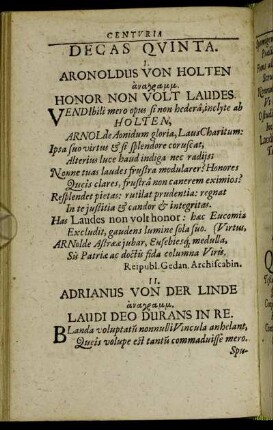 CENTVRIA
DECAS QVINTA.
I.
ARONOLDUS VON HOLTEN
ἀναγραμμ.
HONOR NON VOLT LAUDES.
VENDIbili mero opus si non hederâ, inclyte ab
HOLTEN,
ARNOLde Aonidum gloria, Laus Charitum:
Ipsa suo virtus & si splendore coruscat,
Alterius luce haud indiga nec radijs:
Nonne tuas laudes frustra modularer? Honores
Queis clares, frustrâ non canerem eximios?
Resplendet pietas: rutilat prudentia: regnat
In te justitia & candor & integritas.
Has Laudes non volt honor: hac Eucomia
Excludit, gaudens lumine sola suo. (Virtus,
ARNolde Astrææ jubar, Eusebiesq; medulla,
Sis Patriæ ac doctis fida columna Viris,
Reipubl. Gedan. Archiscabin.
II.
ADRIANUS VON DER LINDE
ἀναγραμμ.
LAUDI DEO DURANS IN RE.
BLanda voluptatũ nonnulli Vincula anhelant,
Queis volupe est tantũ commaduisse mero.
Spu-